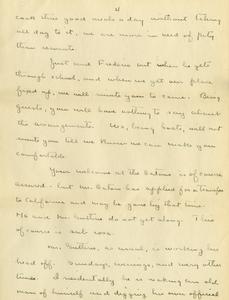 4
cook three good meals a day without taking
all day to it, we are more in need of pity
than remorse.
Just and Frederic but when he gets
through school, and when we get our place
fixed up, we will invite you to come. Being
guests, you will have nothing to say about
the arrangements. We, being hosts, will not
invite you till we know we can make you
comfortable.
Your welcome at the Eatons is of course
assured - but Mr. Eaton has applied for a transfer
to California and may be gone by that time.
He and Mr. Guthrie do not get along. This
of course is sub rosa.
Mr. Guthrie, as usual, is working his
head off. Sundays, evenings, and every other
time. Incidentally he is making an
man of himself and denying his own